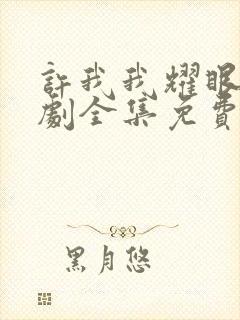 許我我耀眼
劇全集免費
黑月悠